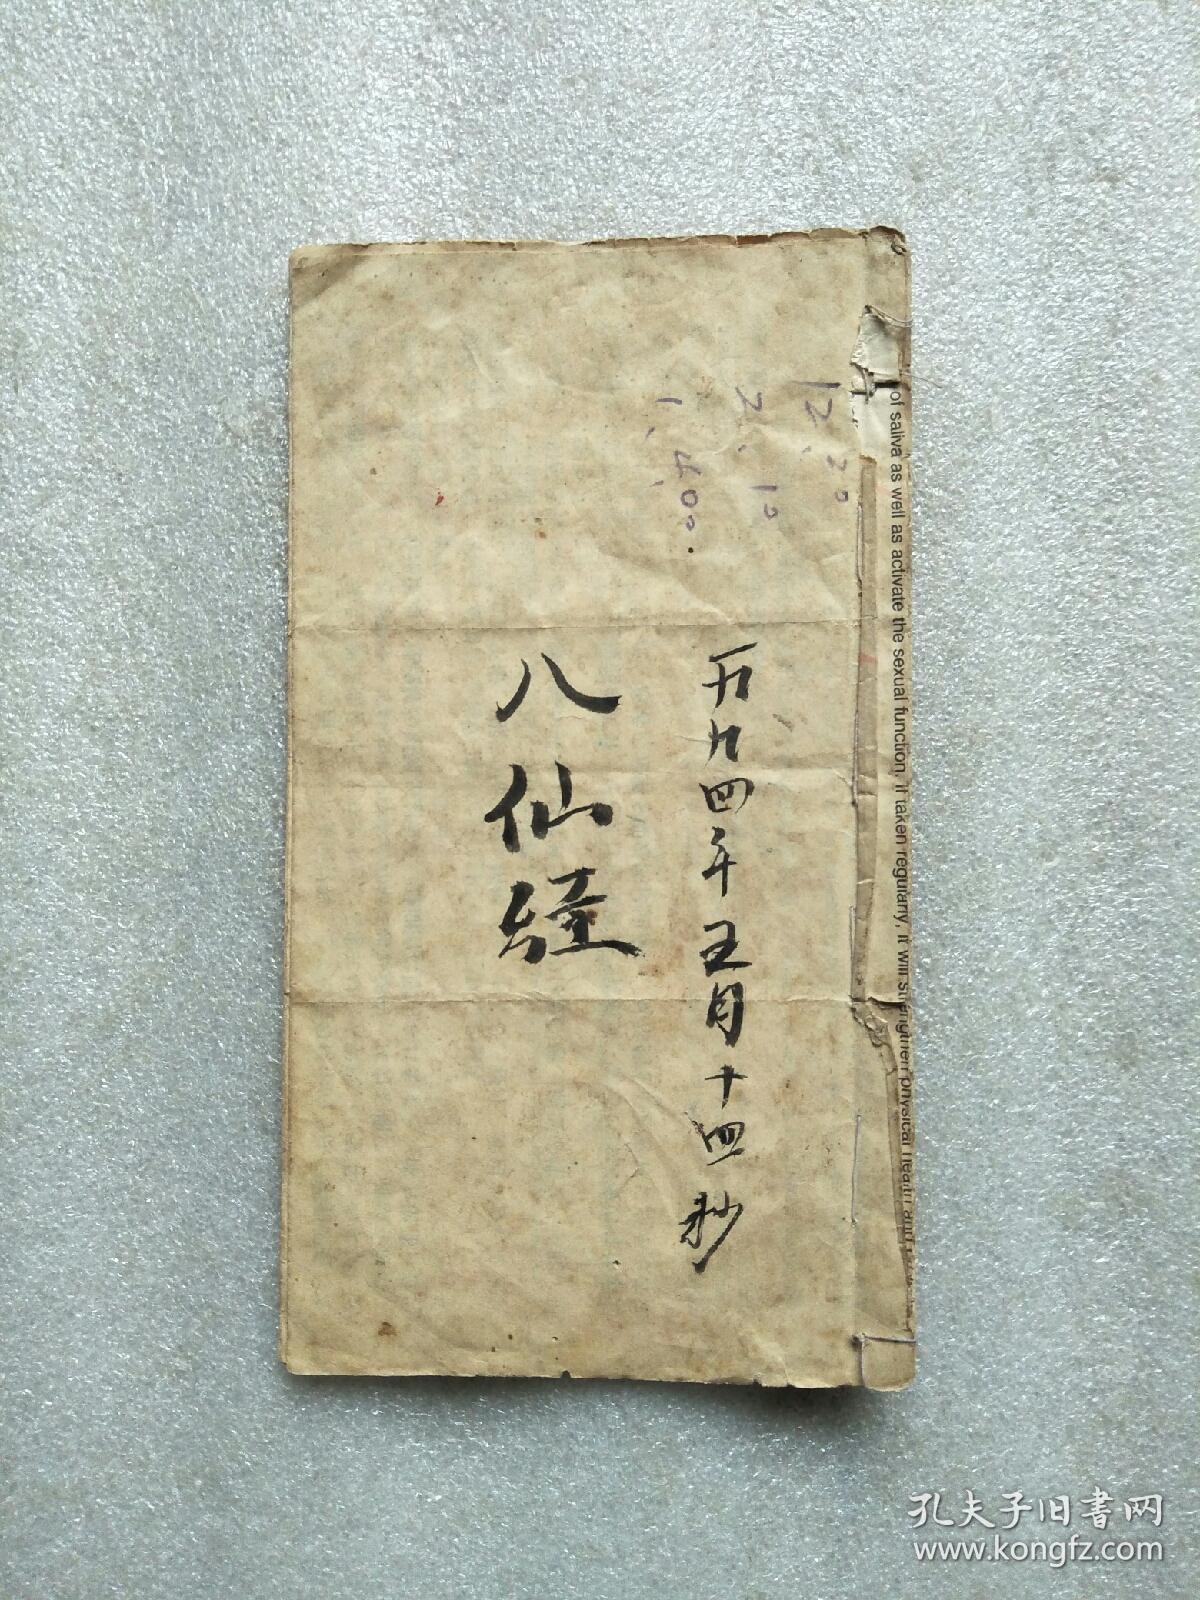 一九九四年五月十四秒
八仙經
12.20
2.10
1.400.
of saliva as well as activate the sexual function, if taken regularly, it will strengthen physical health and
孔夫子旧書网
www.kongfz.com